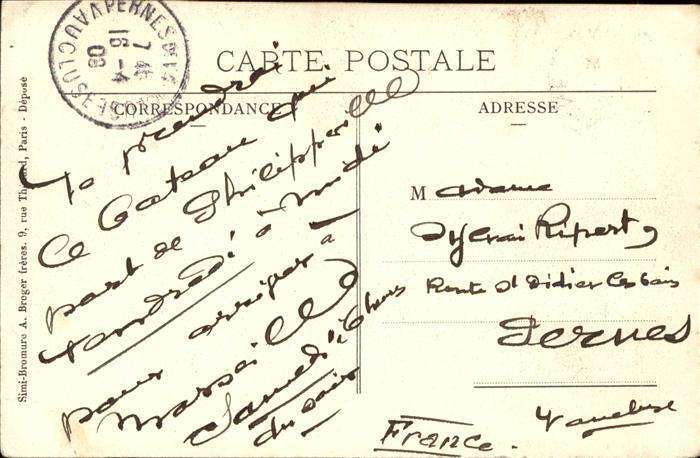 VAUCLUSE PERNES
7 45
16 - 4
08
CARTE POSTALE
CORRESPONDANCE
ADRESSE
Simi-Bromure A. Breger frères. 9, rue Thénard, Paris - Déposé
Je prendrai
le bateau qui
part de Philippeville
vendredi à midi
pour arriver à
Marseille
Samedi à 6 heures
du soir
Madame
Sylvain Ripert
Route St Didier les bains
Pernes
Vaucluse
France.